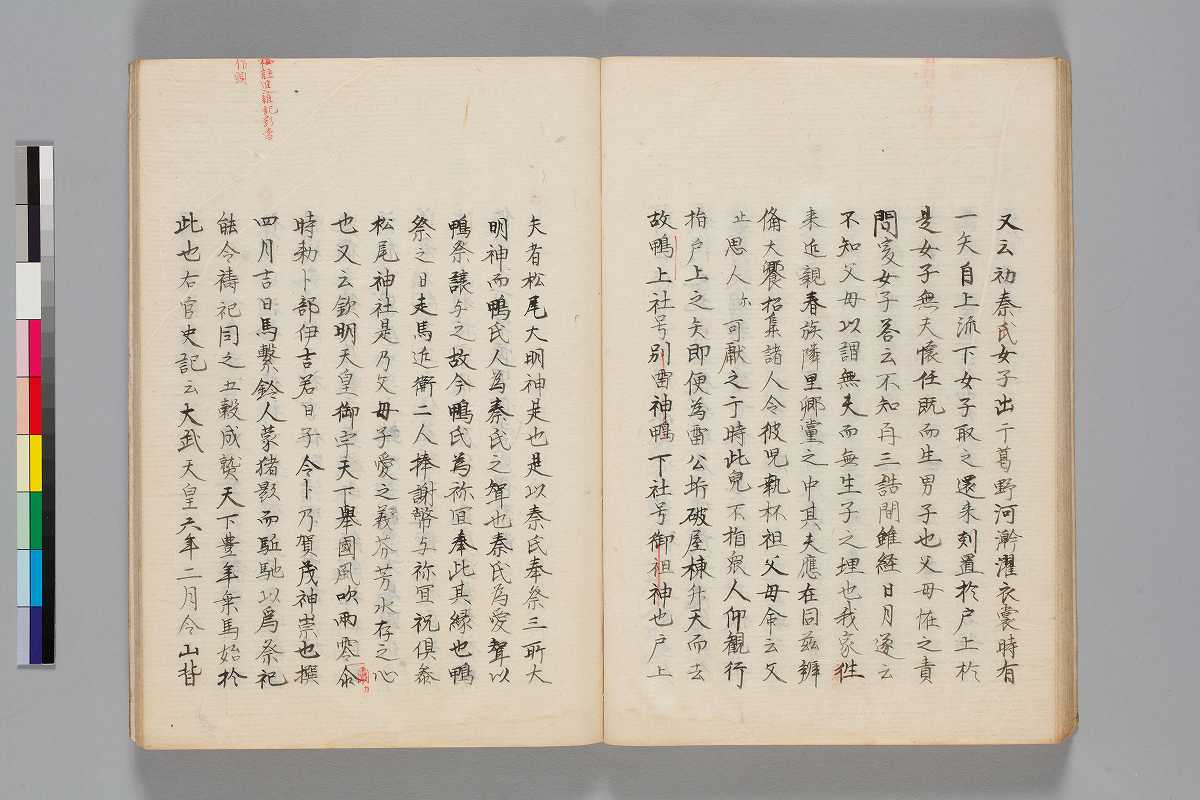 又云初秦氏女子出于葛野河澣濯衣裳時有
一矢自上流下女子取之還来刾置於戸上於
是女子無夫懐任既而生男子也父母恠之責
問爰女子答云不知再三詰問雖経日月遂云
不知父母以謂無夫而無生子之理也我家往
来近親眷族隣里郷黨之中其夫應在同茲辨
俻大饗招集諸人令彼児執杯祖父母命云父
止思人尓可獻之于時此兒不指衆人仰観行
指戸上之矢即便為雷公折破屋棟升天而去
故鴨上社号別雷神鴨下社号御祖神也戸上
矢者松尾大明神是也是以秦氏奉祭三所大
明神而鴨氏人為秦氏之聟也秦氏為愛聟以
鴨祭譲与之故今鴨氏為祢冝奉此其縁也鴨
祭之日走馬近衛二人捧謝幣与祢冝祝倶参
松尾神社是乃父母子愛之義芬芳永存之心
也又云欽明天皇御宇天下擧國風吹雨零
時勅卜部伊吉若日子令卜乃賀茂神祟也撰
四月吉日馬繋鈴人蒙猪影而駈馳以爲祭祀
能令祷祀因之五穀成熟天下豊年乗馬始於
此也右官史記云天武天皇六年二月令山背